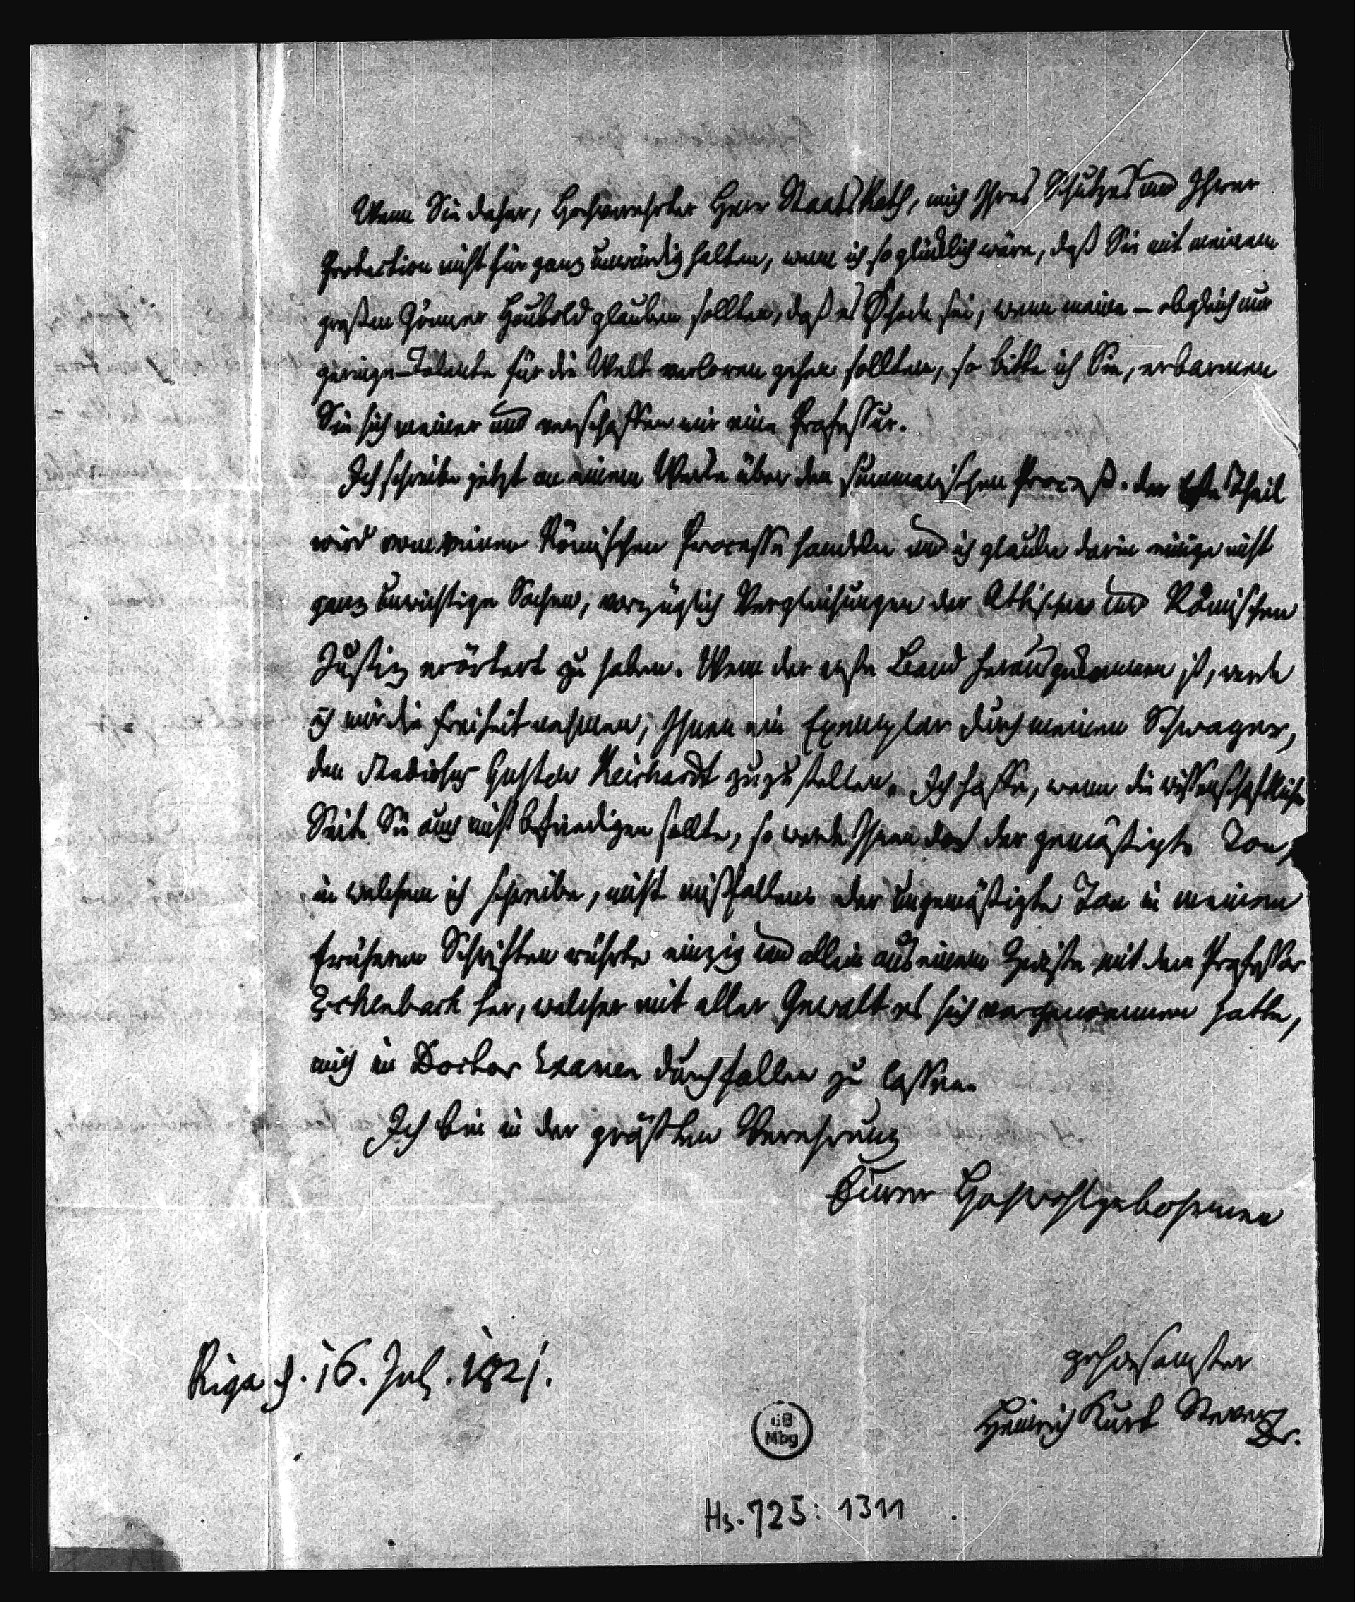 Wenn Sie daher, Hochverehrter Herr StaatsRath, mich Ihres Schutzes und Ihrer
Protection nicht für ganz unwürdig halten, wenn ich so glücklich wäre, daß Sie mit meinem
großen Gönner Haubold glauben sollten, daß es Schade sei, wenn meine – obgleich nur
geringe – Talente für die Welt verloren gehen sollten, so bitte ich Sie, erbarmen
Sie sich meiner und verschaffen mir eine Professur.
Ich schreibe jetzt an einem Werke über den summarischen Proceß. der erste Theil
wird vom reinen Römischen Processe handeln und ich glaube darin einige nicht
ganz unwichtige Sachen, vorzüglich Vergleichungen der Attischen und Römischen
Justiz erörtert zu haben. Wenn der erste Band herausgekommen ist, werde
ich mir die Freiheit nehmen, Ihnen ein Exemplar durch meinen Schwager,
den Mediciner Gustav Reichardt zuzustellen. Ich hoffe, wenn die wissenschaftliche
Seite Sie auch nicht befriedigen sollte, so werde Ihnen doch der gemäßigte Ton,
in welchem ich schreibe, nicht mißfallen. der ungemäßigte Ton in meinen
früheren Schriften rührte einzig und allein aus einem Zwiste mit dem Professor
her, welcher mit aller Gewalt es sich vorgenommen hatte,
mich im Doctor Examen durchfallen zu lassen.
Ich bin in der größten Verehrung
Eurer Hochwohlgebohrnen
Riga d. 16. Jul. 1821.
gehorsamster
Heinrich Kurt Stever
Dr.
UB
Mbg
Hs. 725: 1311